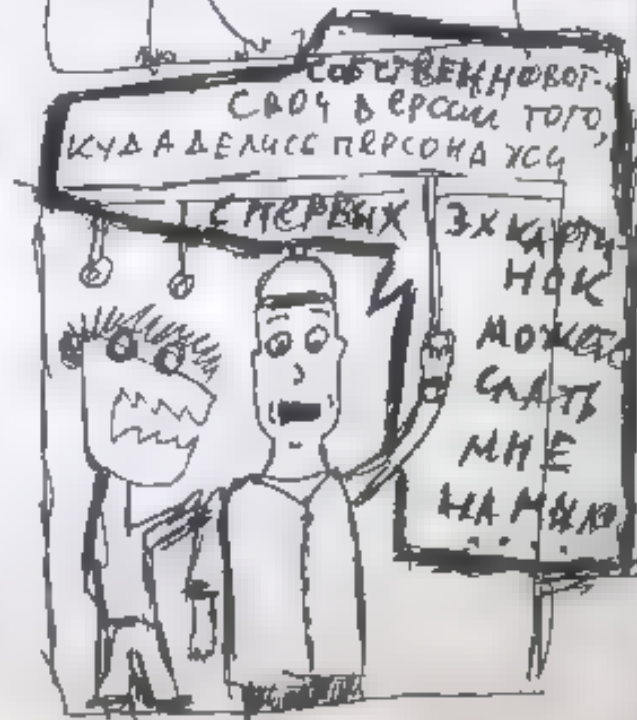 СОБСТВЕННО ВОТ.
СВОИ ВЕРСИИ ТОГО,
КУДА ДЕЛИСЬ ПЕРСОНАЖИ
С ПЕРВЫХ
3Х КАРТИ
НОК
МОЖЕТЕ
СЛАТЬ
МНЕ
НА МЫЛО
...